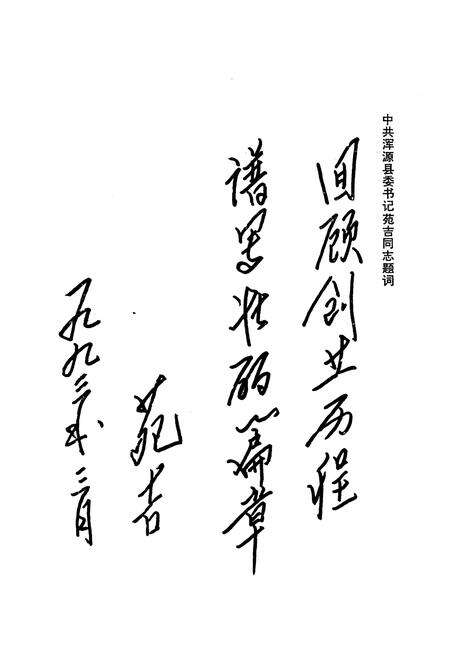 中共浑源县委书记苑吉同志题词
回顾创业历程
谱写壮丽篇章
苑吉
一九九三年三月